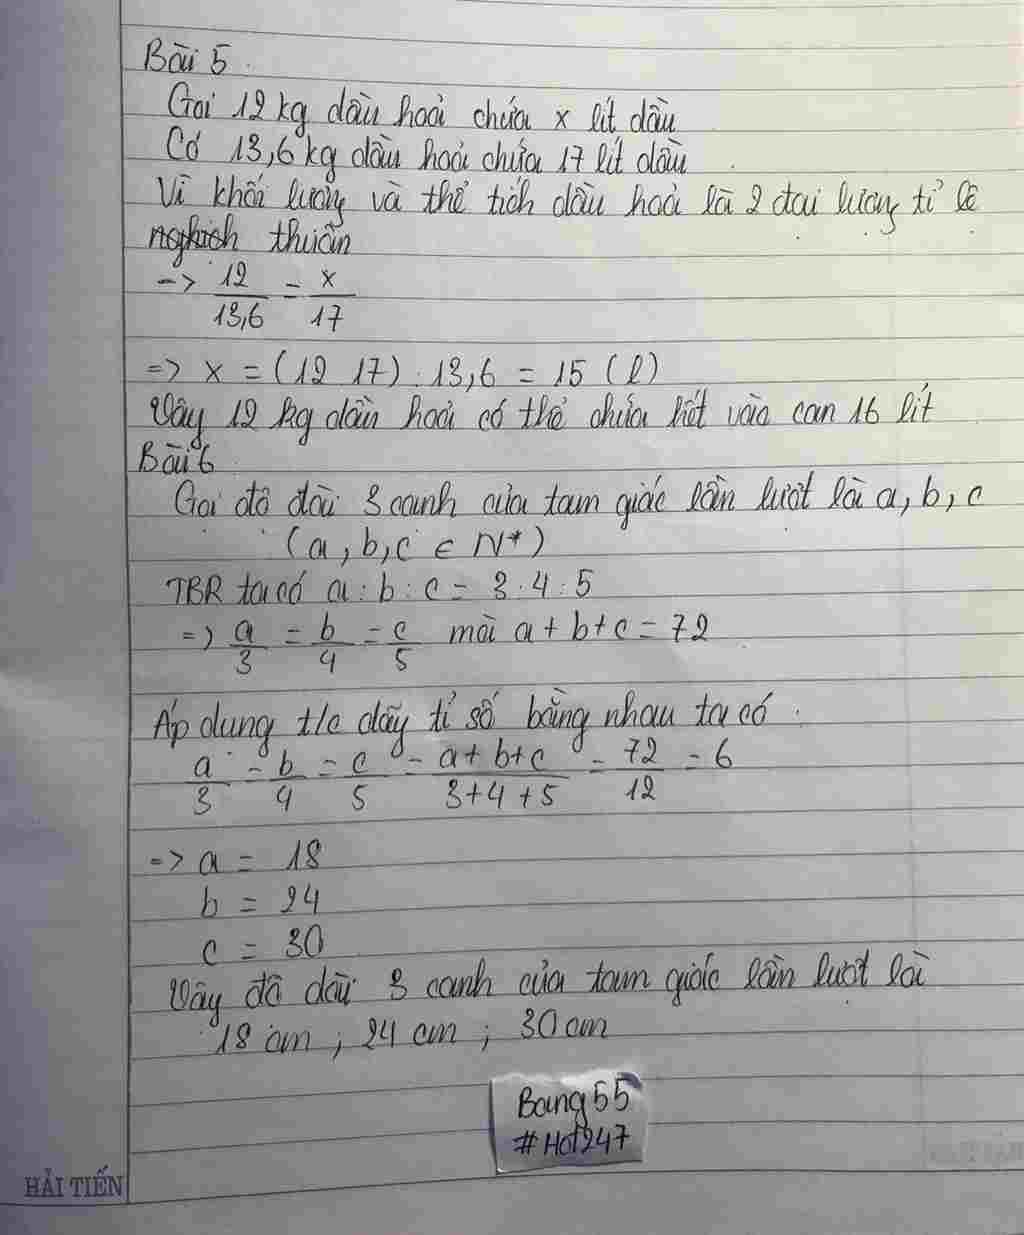 Bài 5
Gọi 12 kg dầu hoả chứa x lít dầu
Có 13,6 kg dầu hoả chứa 17 lít dầu
Vì khối lượng và thể tích dầu hoả là 2 đại lượng tỉ lệ
nghịch thuận
=> 12/13,6 = x/17
=> x = (12 . 17) : 13,6 = 15 (l)
Vậy 12 kg dầu hoả có thể chứa hết vào can 16 lít
Bài 6
Gọi độ dài 3 cạnh của tam giác lần lượt là a, b, c
(a, b, c ∈ N*)
TBR ta có a : b : c = 3 : 4 : 5
=> a/3 = b/4 = c/5 mà a + b + c = 72
Áp dụng t/c dãy tỉ số bằng nhau ta có :
a/3 = b/4 = c/5 = a+b+c/3+4+5 = 72/12 = 6
=> a = 18
b = 24
c = 30
Vậy độ dài 3 cạnh của tam giác lần lượt là
18 cm ; 24 cm ; 30 cm
Bang55
#Hd247
HẢI TIẾN